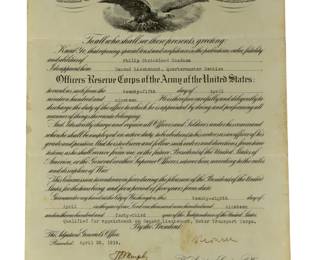 To all who shall see these presents, greeting:
Know Ye, that reposing special trust and confidence in the patriotism, valor, fidelity
and abilities of Philip Christian
I do appoint him Second Lieutenant, Quartermaster Section
Officers Reserve Corps of the Army of the United States:
to rank as such from the twenty-fifth day of April
nineteen hundred and nineteen. He is therefore carefully and diligently to
discharge the duty of the office to which he is appointed by doing and performing all
manner of things thereunto belonging.
And I do strictly charge and require all Officers and Soldiers under his command
when he shall be employed on active duty to be obedient to his orders as an officer of
his grade and position. And he is to observe and follow such orders and directions, from time
to time, as shall be given from me, or the future President of the United States of
America, or the General or other Superior Officers set over him, according to the rules
and discipline of War.
This Commission to continue in force during the pleasure of the President of the United
States, for the time being, and for a period of five years from date.
Given under my hand at the City of Washington, this twenty-fifth day of
April in the year of our Lord one thousand nine
hundred and nineteen
and in the one hundred and forty-third year of the Independence of the United States.
Qualified for appointment as Second Lieutenant, Motor Transport Corps.
By the President:
The Adjutant General's Office.
Recorded April 28, 1919.